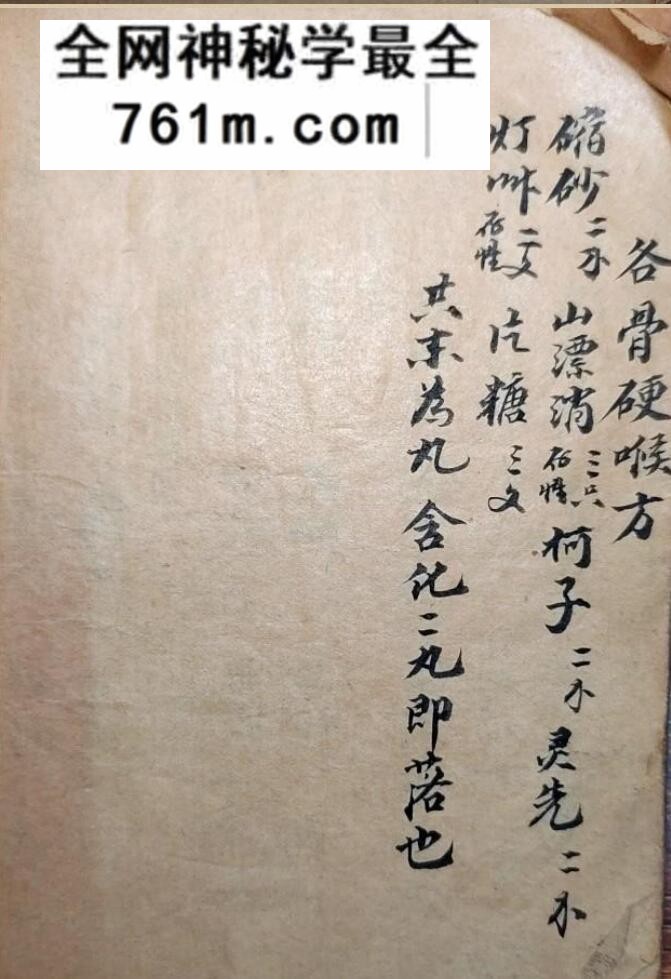 全网神秘学最全
761m.com
各骨硬喉方
缩砂二不 山漂消三只存性 柯子二不 灵先二不
灯草二文存性 片糖三文
共末為丸 含化二丸即落也